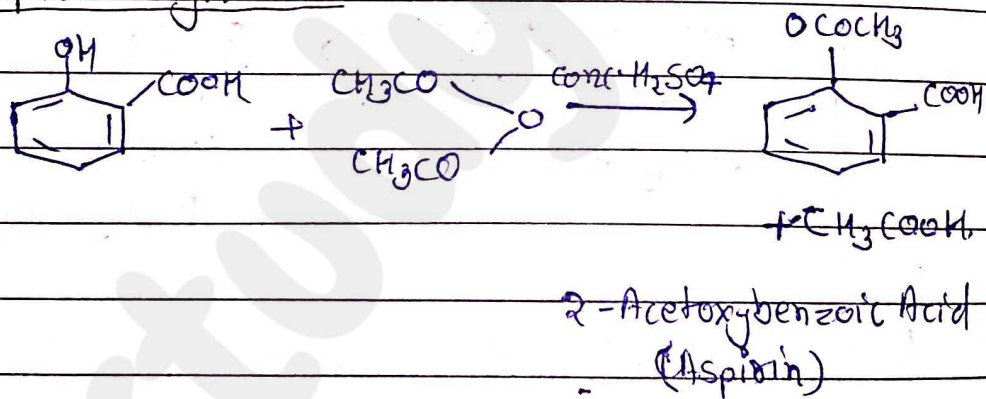 OH
COOH
+
CH3CO
O
CH3CO
conc. H2SO4
OCOCH3
COOH
+ CH3COOH.
2-Acetoxybenzoic Acid
(Aspirin)